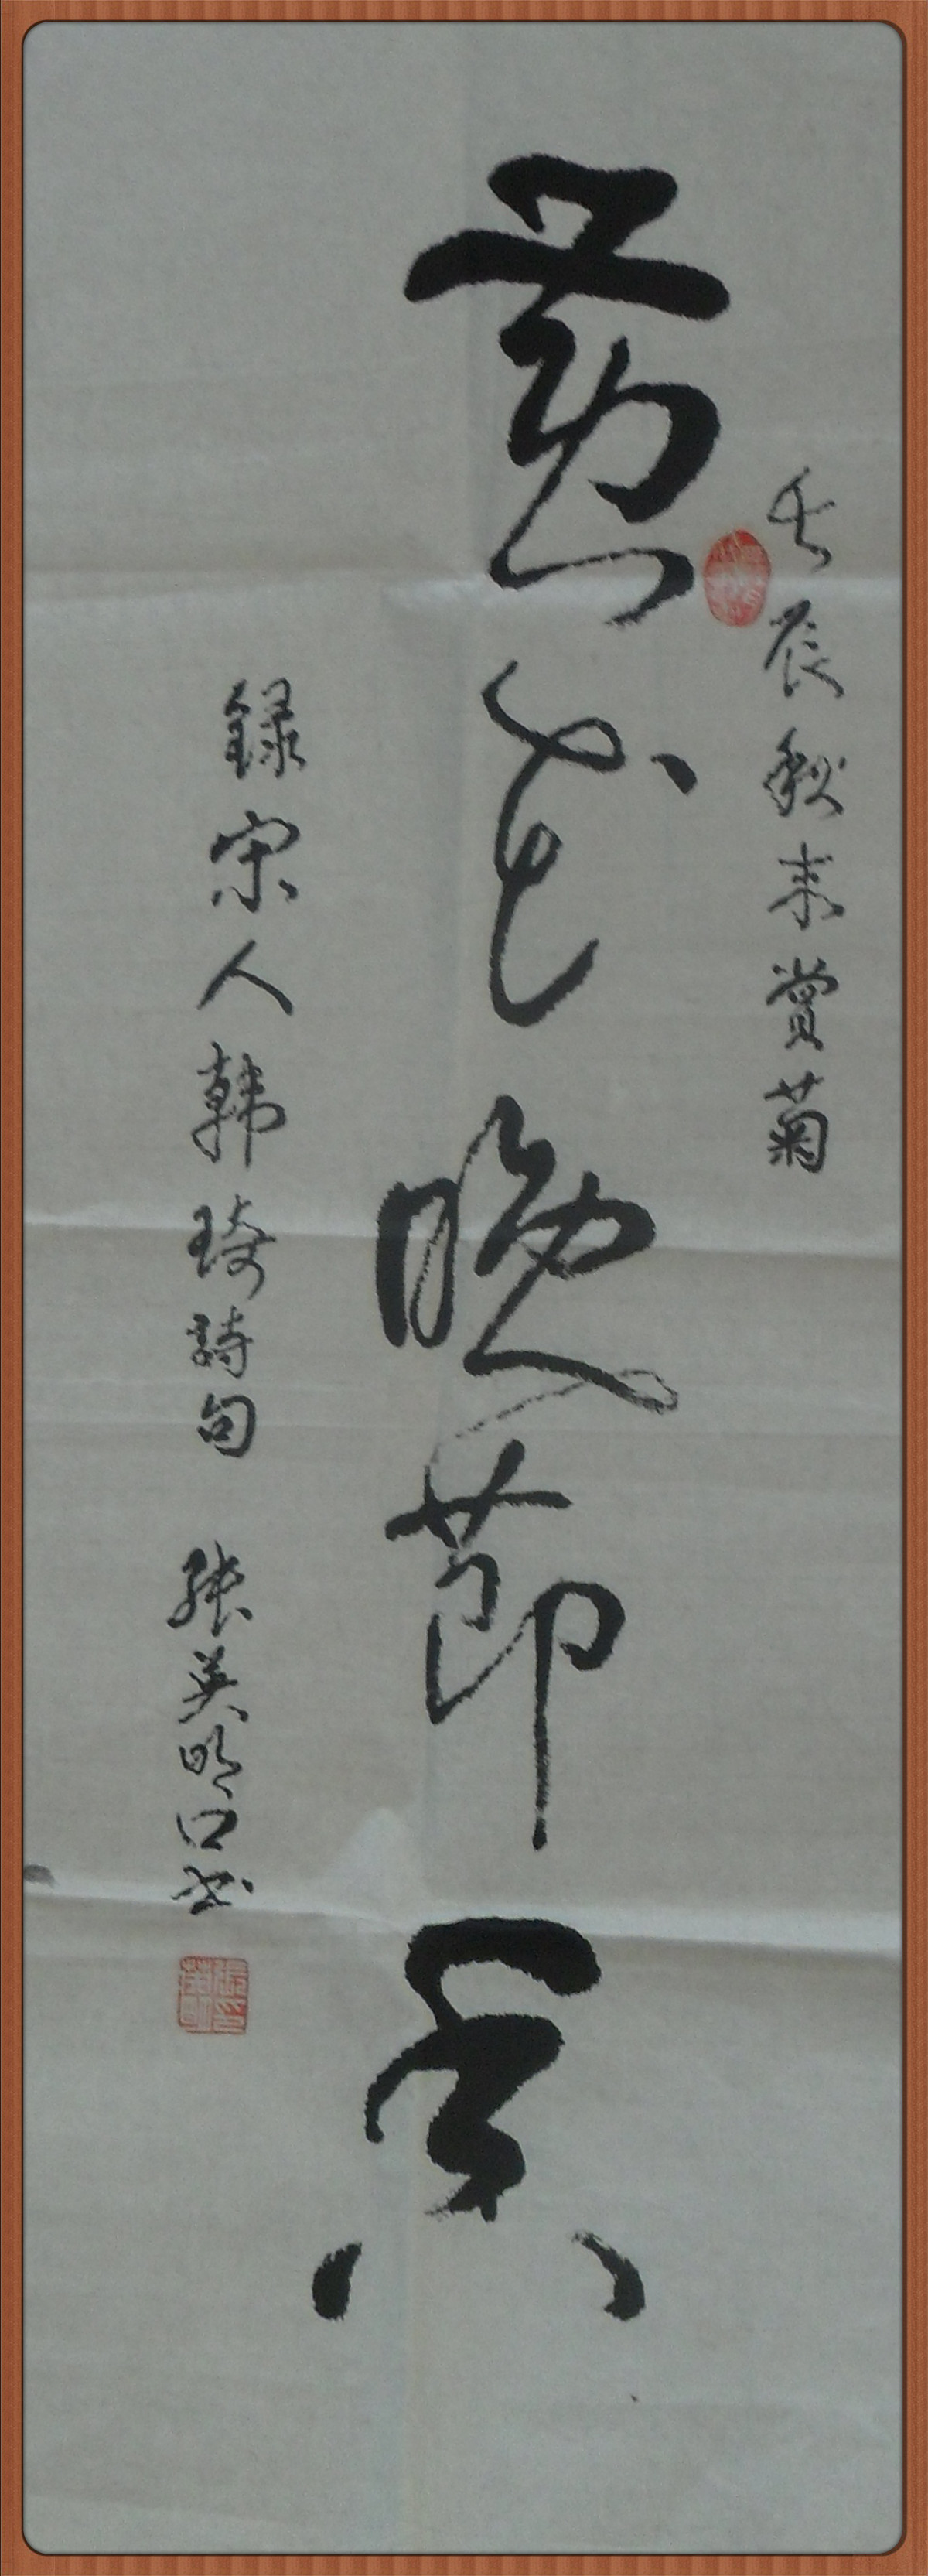 壬辰秋末賞菊
黄花晚節香
録宋人韩琦詩句 張英明书